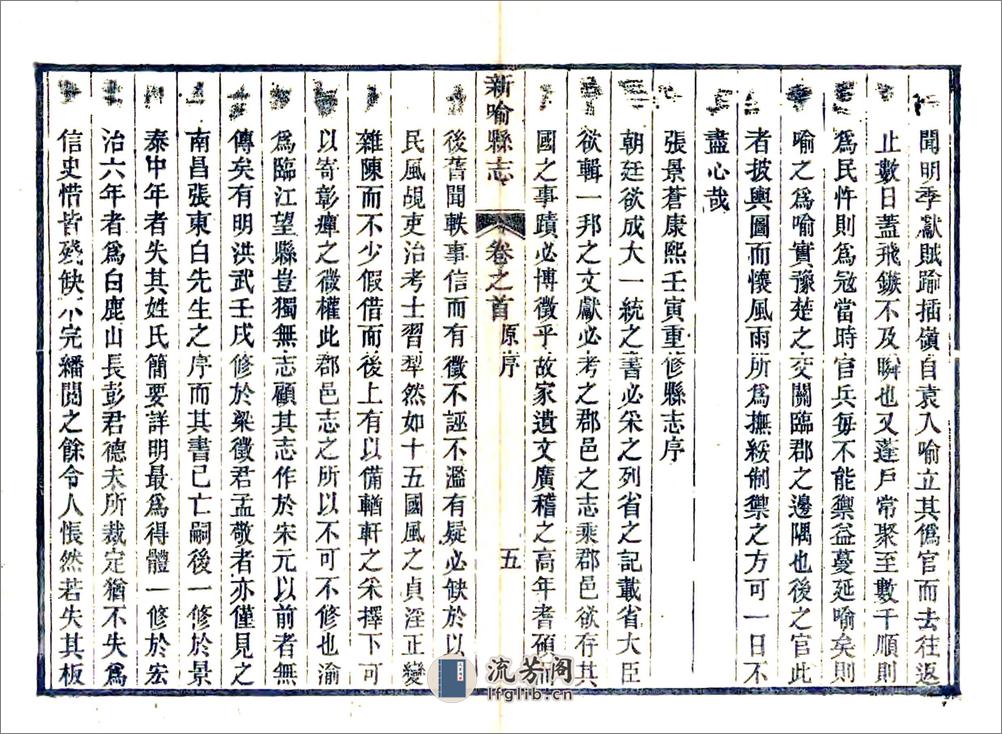 聞明季獻賊踰插嶺自袁入喻立其僞官而去往返
止數日蓋飛鏃不及瞬也又蓬戶常聚至數千順則
爲民忤則爲寇當時官兵每不能禦益蔓延喻矣則
喻之爲喻實豫楚之交關臨郡之邊隅也後之官此
者披輿圖而懷風雨所爲撫綏制禦之方可一日不
盡心哉
張景蒼康熙壬寅重修縣志序
朝廷欲成大一統之書必采之列省之記載省大臣
欲輯一邦之文獻必考之郡邑之志乘郡邑欲存其
國之事蹟必博徵乎故家遺文廣稽之高年耆碩而
新喻縣志 卷之首 原序 五
後舊聞軼事信而有徵不誣不濫有疑必缺於以
民風覘吏治考士習犁然如十五國風之貞淫正變
雜陳而不少假借而後上有以備輶軒之采擇下可
以寄彰癉之微權此郡邑志之所以不可不修也渝
爲臨江望縣豈獨無志顧其志作於宋元以前者無
傳矣有明洪武壬戌修於梁徵君孟敬者亦僅見之
南昌張東白先生之序而其書已亡嗣後一修於景
泰中年者失其姓氏簡要詳明最爲得體一修於宏
治六年者爲白鹿山長彭君德夫所裁定猶不失爲
信史惜皆殘缺不完繙閱之餘令人悵然若失其板
流芳閣
lfglib.cn